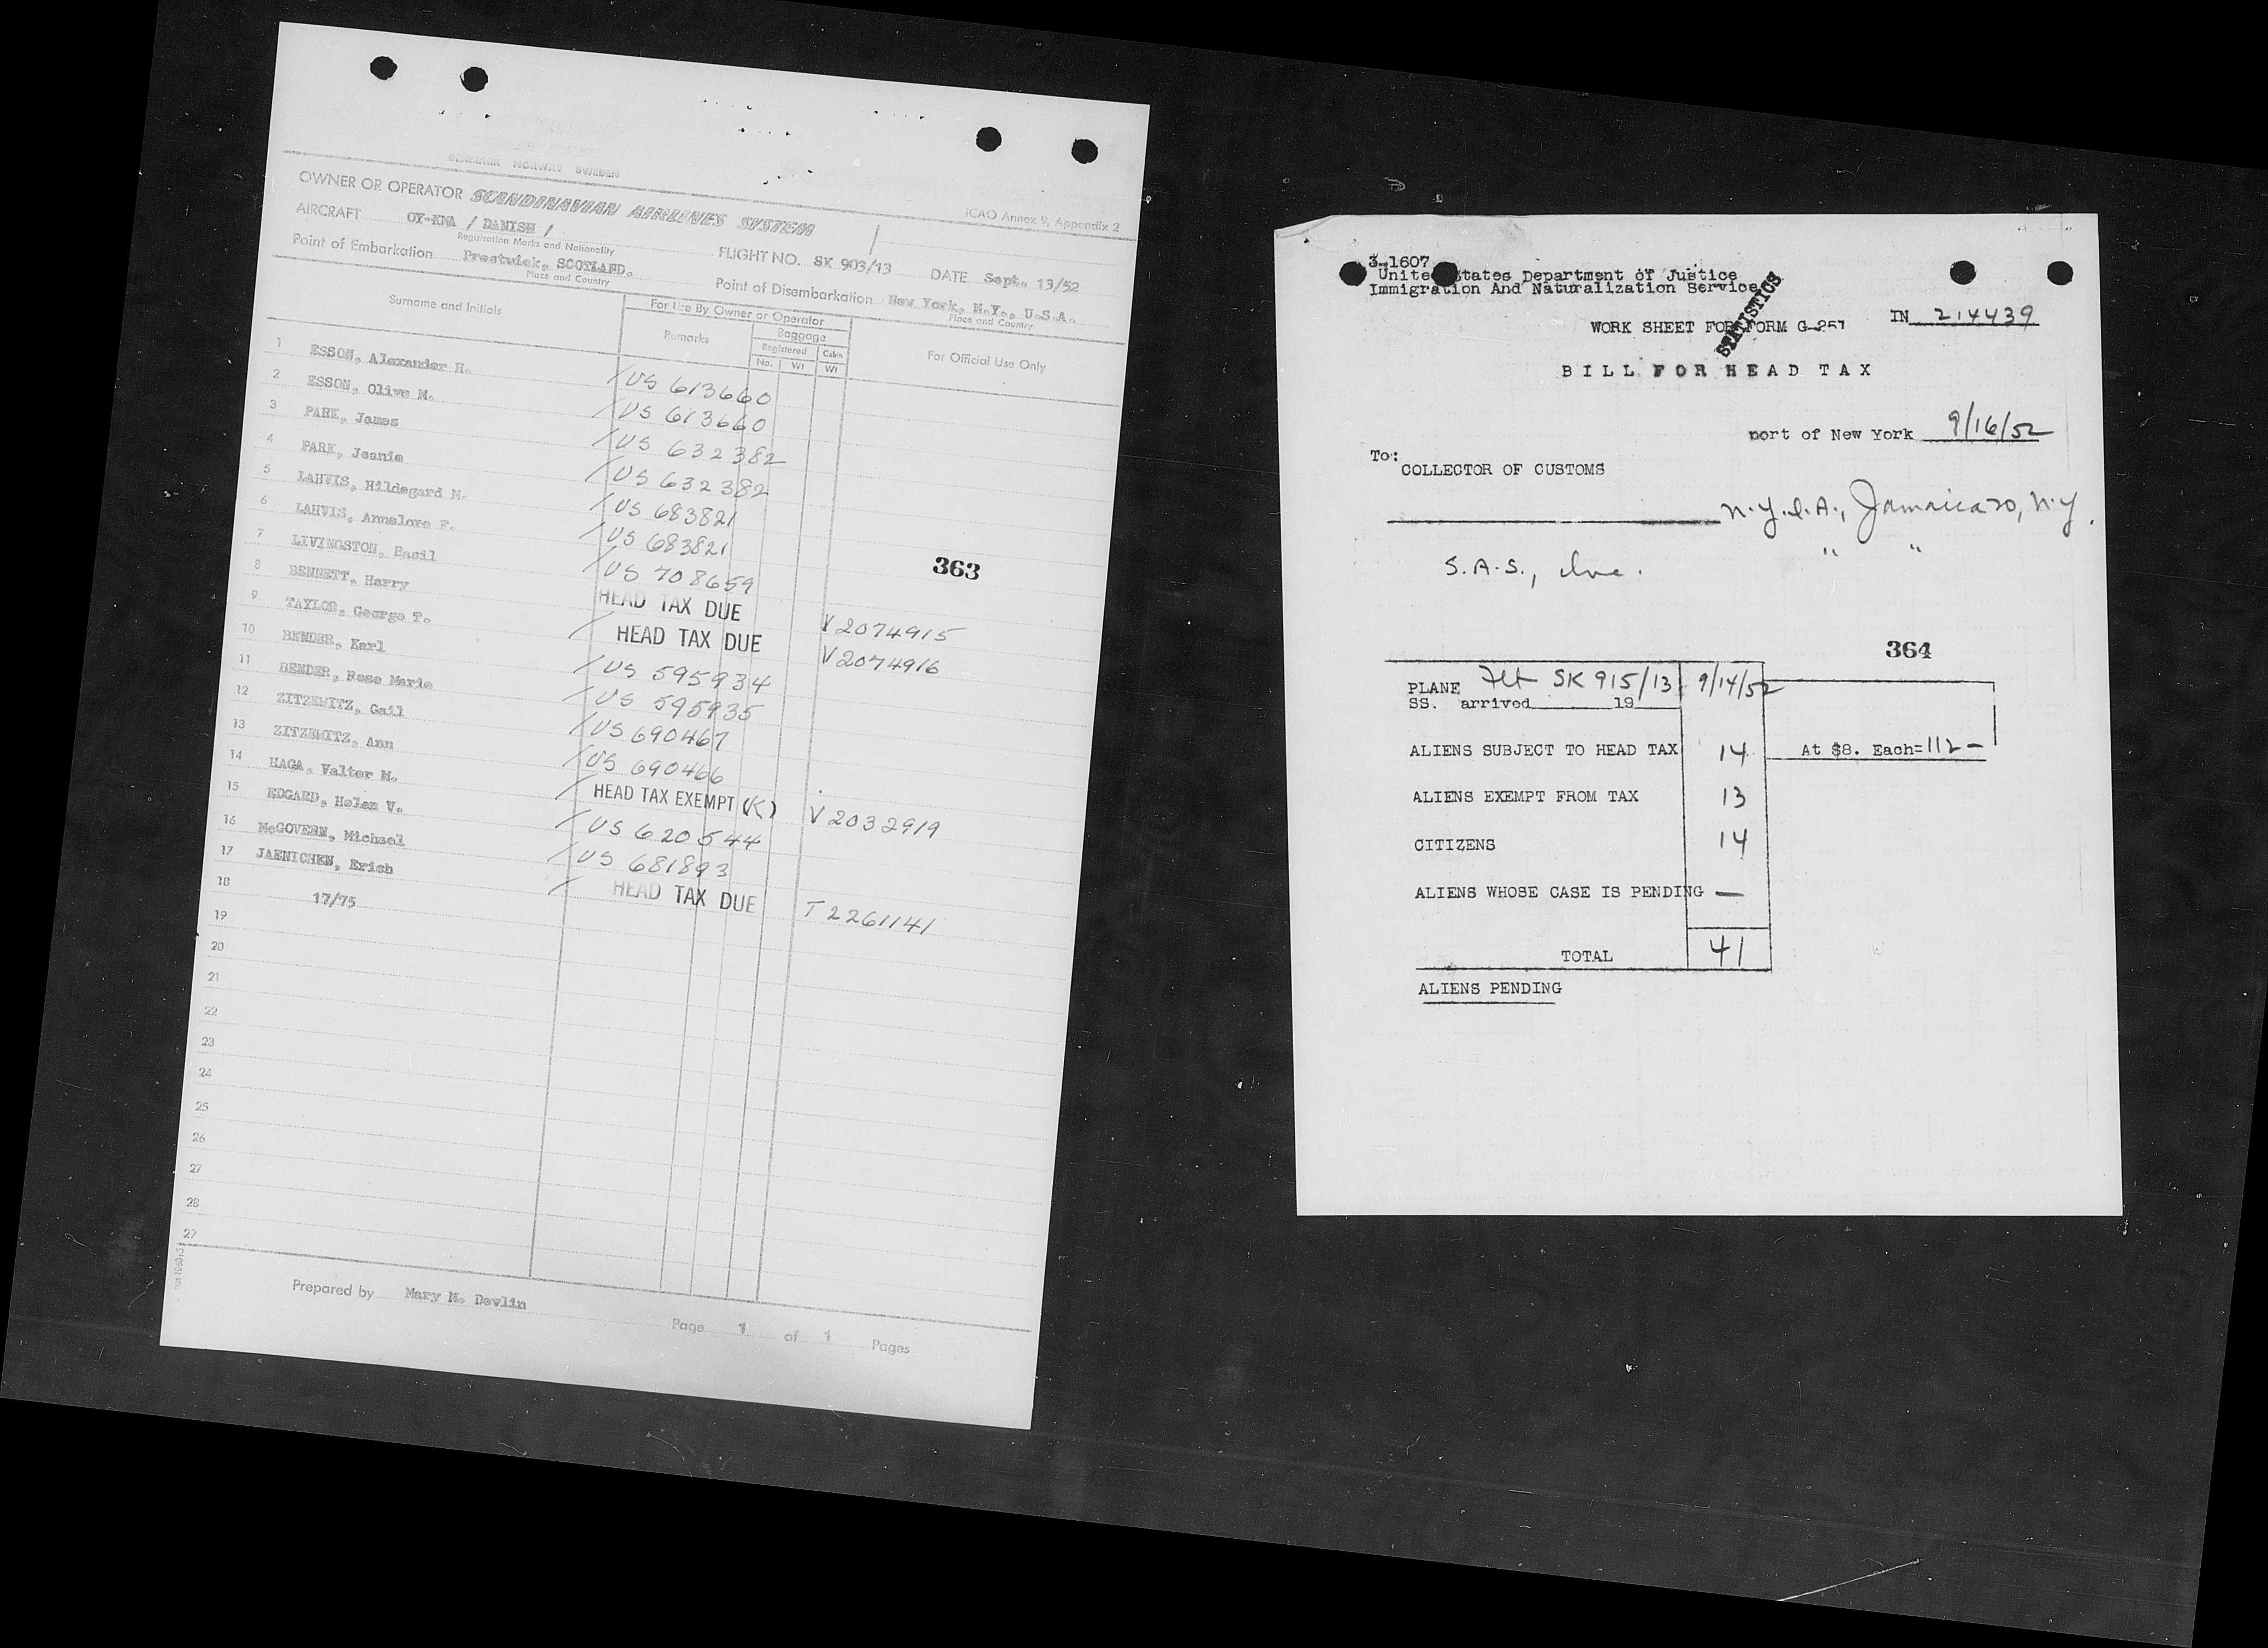 DENMARK NORWAY SWEDEN
ICAO Annex 9, Appendix 2
OWNER OR OPERATOR SCANDINAVIAN AIRLINES SYSTEM
AIRCRAFT OY-KNA / DANISH /
Registration Marks and Nationality
FLIGHT NO. SK 903/13 DATE Sept. 13/52
Point of Embarkation Prestwick, SCOTLAND.
Place and Country
Point of Disembarkation New York, N.Y., U.S.A.
Place and Country
Surname and Initials
For Use By Owner or Operator
Remarks
Baggage
Registered Cabin
No. Wt Wt
For Official Use Only
1 ESSON, Alexander H. US 613660
2 ESSON, Olive M. US 613660
3 PARK, James US 632382
4 PARK, Jeanie US 632382
5 LAHVIS, Hildegard M. US 683821
6 LAHVIS, Annelore F. US 683821
7 LIVINGSTON, Basil US 708659
363
8 BENNETT, Harry HEAD TAX DUE V 2074915
9 TAYLOR, George T. HEAD TAX DUE V 2074916
10 BENDER, Karl US 595934
11 BENDER, Rose Marie US 595935
12 ZITZEWITZ, Gail US 690467
13 ZITZEWITZ, Ann US 690466
14 HAGA, Valter M. HEAD TAX EXEMPT (K) V 2032919
15 EDGARD, Helen V. US 620544
16 McGOVERN, Michael US 681893
17 JAENICHEN, Erich HEAD TAX DUE T 2261141
18 17/75
19
20
21
22
23
24
25
26
27
28
29
Prepared by Mary M. Devlin
Page 1 of 1 Pages
3-1607
United States Department of Justice
Immigration And Naturalization Service
STATISTICS
WORK SHEET FOR FORM G-257 IN 214439
BILL FOR HEAD TAX
port of New York 9/16/52
To:
COLLECTOR OF CUSTOMS
N.Y.I.A., Jamaica 20, N.Y.
S.A.S., Inc. " "
364
PLANE Flt SK 915/13 9/14/52
SS. arrived 19
ALIENS SUBJECT TO HEAD TAX 14 At $8. Each= 112 -
ALIENS EXEMPT FROM TAX 13
CITIZENS 14
ALIENS WHOSE CASE IS PENDING —
TOTAL 41
ALIENS PENDING